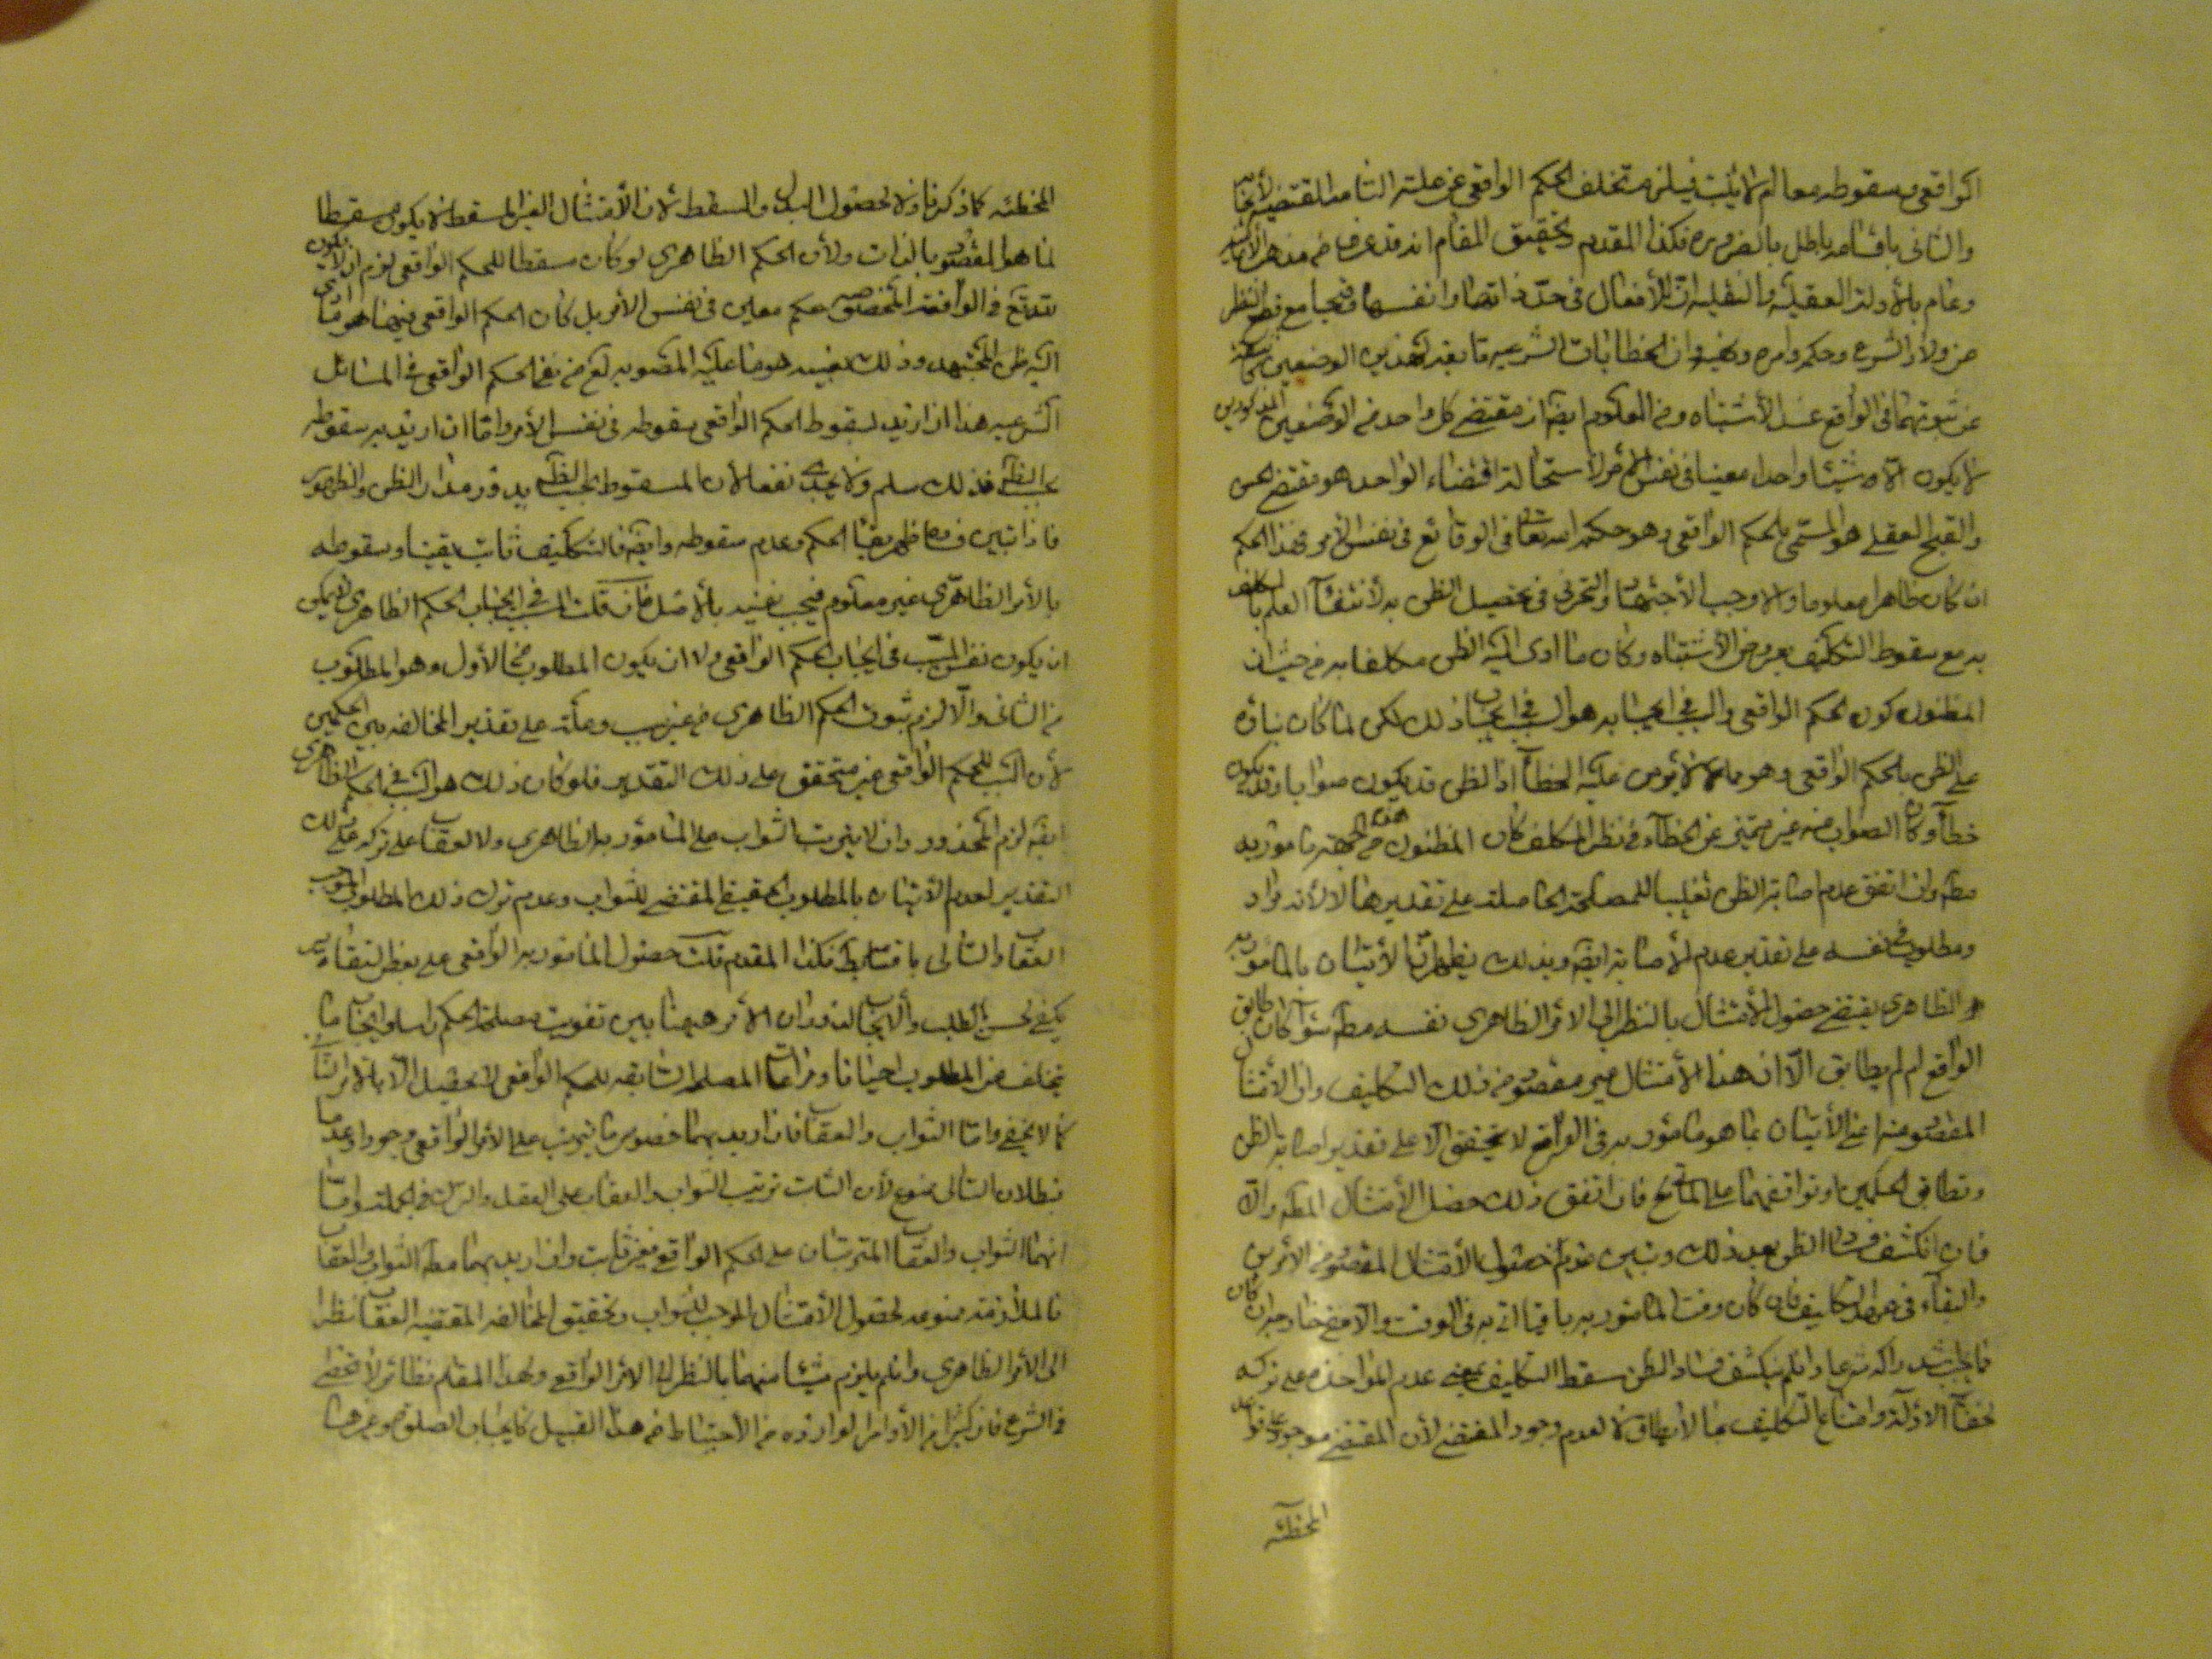 الواقعي وسقوطه معا لم يثبت فيلزم تخلف الحكم الواقعي عن علته التامة المقتضية
والثاني باقسامه باطل بالضرورة فكذا المقدم وتحقيق المقام انه قد عرف من مذهب الامامية
وعلم بالأدلة العقلية والنقلية ان للأفعال في حد ذاتها وانفسها مع قطع النظر
عن ورود الشرع وحكمه وامره ونهيه وان الخطابات الشرعية تابعة لهذين الوصفين
عن ثبوتهما في الواقع عند الأشتباه ومن المعلوم ايضا ان مقتضى كل واحد من الوصفين المذكورين
لا يكون الا شيئا واحدا معينا في نفس الأمر لاستحالة اقتضاء الواحد هو مقتضى الحسن
والقبح العقلي هو المسمى بالحكم الواقعي وهو حكم الله تعالى في الوقائع في نفس الأمر فهذا الحكم
ان كان ظاهرا معلوما والا وجب الأجتهاد والتحري في تحصيل الظن به لأنتفاء العلم
به مع سقوط التكليف بعروض الأشتباه وكان ما ادى اليه الظن مكلفا به من حيث ان
المظنون كون الحكم الواقعي والسبب في ايجابه هو السبب في ايجاب ذلك لكن لما كان بناؤه
على الظن بالحكم الواقعي وهو مما لا يؤمن عليه الخطأ اذ الظن قد يكون صوابا وقد يكون
خطأ وكان الصواب منه غير متميز عن الخطأ في نظر المكلف كان المظنون من هذه الجهة مأمورا به
مطلقا وان اتفق عدم اصابة الظن تغليبا للمصلحة الحاصلة على تقديرها لا لأنه مراد
ومطلوب في نفسه على تقدير عدم الأصابة ايضا وبذلك يظهر ان الأتيان بالمأمور به
الظاهري يقتضي حصول الأمتثال بالنظر الى الامر الظاهري نفسه مطلقا سواء كان طابق
الواقع ام لم يطابق الا ان هذا الأمتثال غير مقصود من ذلك التكليف وان الامتثال
المقصود منه اعني الأتيان بما هو مأمور به في الواقع لا يتحقق الا على تقدير اصابة الظن
وتطابق الحكمين وتوافقهما فان اتفق ذلك حصل الأمتثال المطلوب والا
فان انكشف فساد الظن بعد ذلك وتبين عدم حصول الأمتثال المقصود من الامرين
والبقاء في التكليف فان كان وقت المأمور به باقيا اتى به في الوقت والا في خارجه ان كان
مما يجب تداركه شرعا وان لم ينكشف فساد الظن سقط التكليف بمعنى عدم المؤاخذة على تركه
لخفاء الادلة وامتناع التكليف بما لا يطاق لا لعدم وجود المقتضي لأن المقتضي موجود
المخطئة
المخطئة كما ذكرنا ولا لحصول البدل والمسقط لان الأمتثال الغير المسقط لا يكون مسقطا
لما هو المقصود بالذات ولأن الحكم الظاهري لو كان مسقطا للحكم الواقعي لزم ان لا يكون
لله تعالى في الواقعة المخصوصة حكم معين في نفس الأمر بل كان الحكم الواقعي فيها هو ما ادى
اليه ظن المجتهد وذلك بعينه هو ما عليه المصوبة من نفي الحكم الواقعي في المسائل
الشرعية هذا ان اريد بسقوط الحكم الواقعي سقوطه في نفس الأمر واما ان اريد به سقوطه
بحسب الظاهر فذلك مسلم ولا يجدي نفعا لأن السقوط بحسب الظاهر يدور مدار الظن والظهور
فاذا تبين فساده ظهر بقاء الحكم وعدم سقوطه وايضا فالتكليف ثابت يقينا وسقوطه
بالأمر الظاهري غير معلوم فيجب نفيه بالأصل فان قلت السبب في ايجاب الحكم الظاهري
ان يكون نفس السبب في ايجاب الحكم الواقعي والا ان يكون المطلوب من الأول وهو المطلوب
من الثاني والا لزم ثبوت الحكم الظاهري من غير سبب وعلة على تقدير المخالفة بين الحكمين
لأن السبب للحكم الواقعي غير متحقق على ذلك التقدير فلو كان ذلك هو السبب في الحكم الظاهري
ايضا لزم المحذور وان لا يترتب الثواب على المأمور به الظاهري ولا العقاب على تركه على ذلك
التقدير لعدم الأتيان بالمطلوب الحقيقي المقتضي للثواب وعدم ترك ذلك المطلوب الموجب
العقاب والتالي باقسامه فكذا المقدم قلت حصول المأمور به الواقعي على بعض
يكفي لحسن الطلب والايجاب لدوران الأمر ههنا بين تفويت مصلحة الحكم راسا وايجاب ما
يتخلف عن المطلوب احيانا ومراعاة المصلحة السابقة للحكم الواقعي لا تحصل الا بالامر الثاني
كما لا يخفى واما الثواب والعقاب فان اريد بهما خصوص ما يترتب على الأمر الواقعي وجودا وعدما
فبطلان التالي ممنوع لأن الثابت ترتب الثواب والعقاب على الفعل والترك في الجملة واما
انهما الثواب والعقاب المترتبان على الحكم الواقعي فغير ثابت وان اريد بهما مطلق الثواب والعقاب
فالملازمة ممنوعة لحصول الأمتثال الموجب للثواب وتحقيق المخالفة المقتضية العقاب نظرا
الى الأمر الظاهري وان لم يلزم شيئا منهما بالنظر الى الامر الواقعي ولهذا المقام نظائر لا تخفى
في الشرع فان كثيرا من الأوامر الواردة من الأحتياط من هذا القبيل كايجاب الصلوة